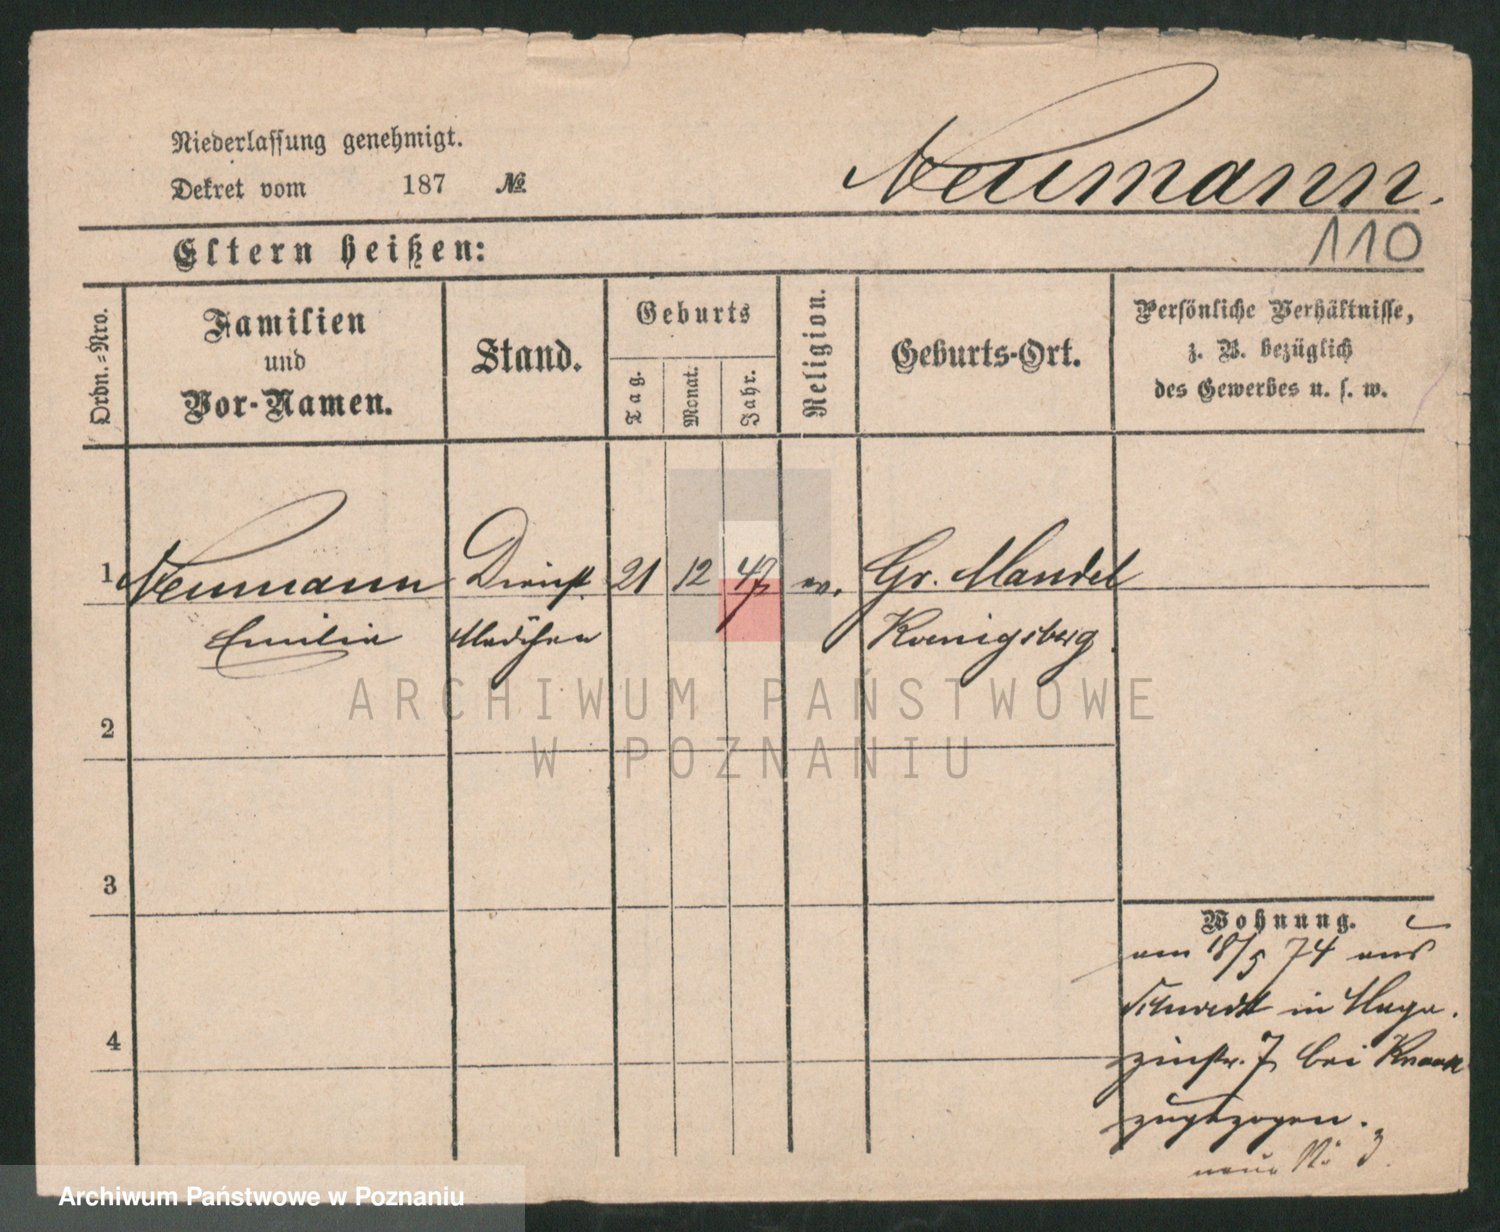 Niederlassung genehmigt.
Dekret vom 187 №
Neumann.
110
Eltern heißen:
Ordn.=Nro.
Familien
und
Vor-Namen.
Stand.
Geburts
Tag.
Monat.
Jahr.
Religion.
Geburts-Ort.
Persönliche Verhältnisse,
z. B. bezüglich
des Gewerbes u. s. w.
1 Neumann Dienst 21 12 47 ev. Gr. Mandel
Emilie Mädchen Koenigsberg
2
3
4
Wohnung.
am 18/5 74 aus
Schwedt in Maga.
zinstr. 7 bei
zugezogen.
neue No 3.
ARCHIWUM PAŃSTWOWE
W POZNANIU
Archiwum Państwowe w Poznaniu